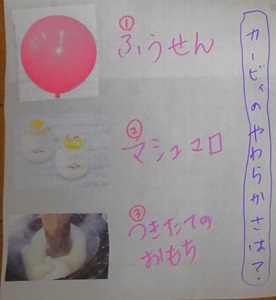 カービィのやわらかさは?
①
ふうせん
②
マシュマロ
③
つきたての
おもち